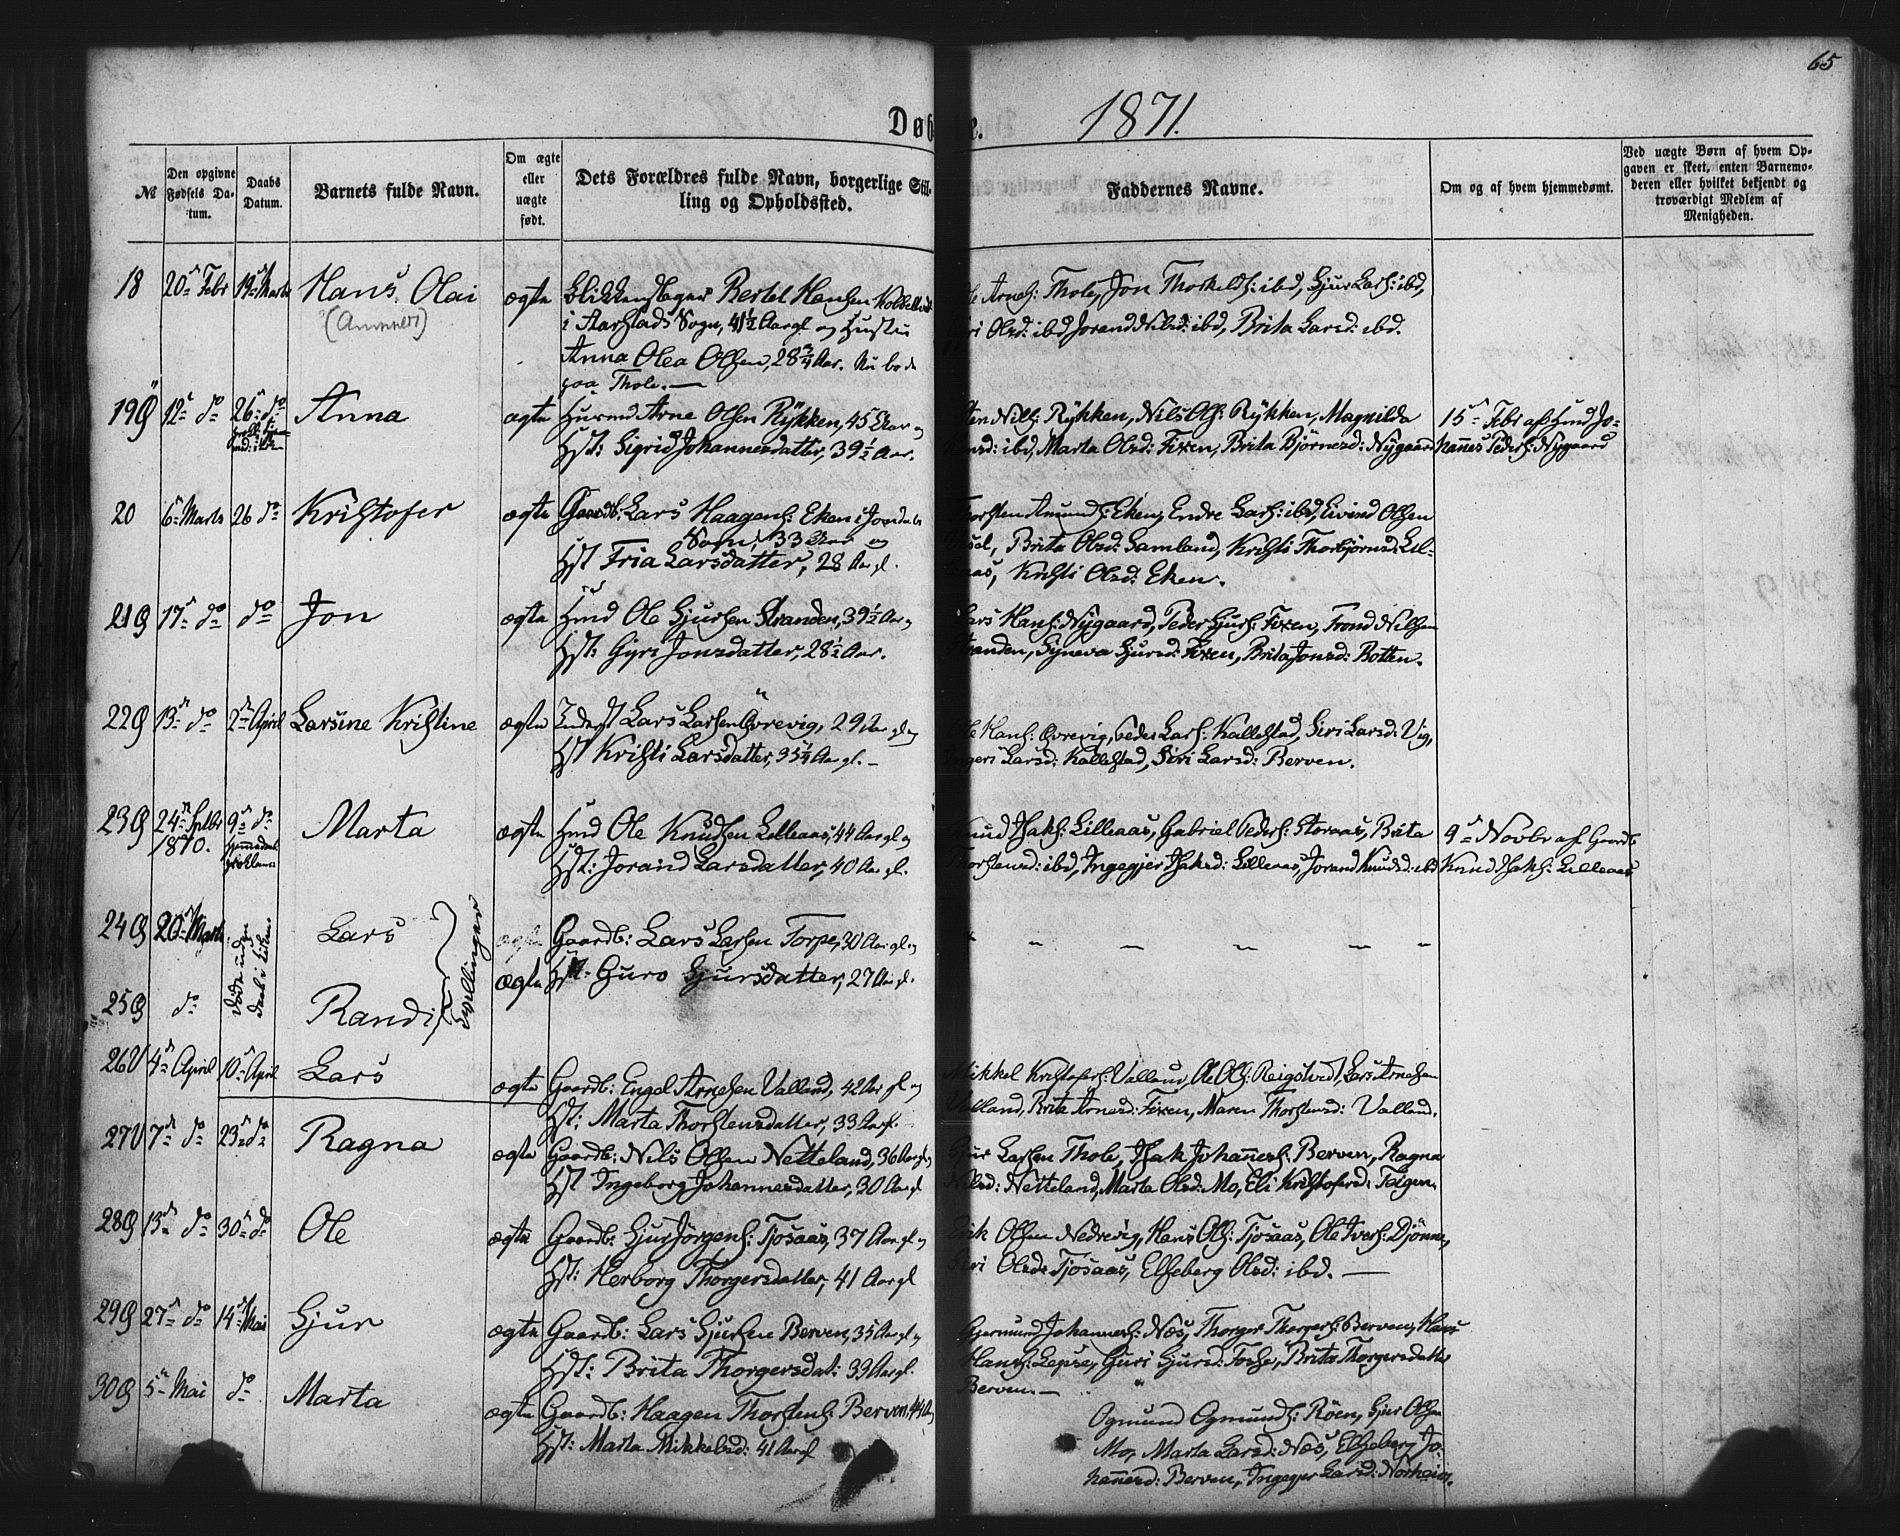 65
Døbte. 1871.
№
Den opgivne Fødsels Datum.
Daabs Datum.
Barnets fulde Navn.
Om ægte eller uægte født.
Dets Forældres fulde Navn, borgerlige Stilling og Opholdssted.
Faddernes Navne.
Om og af hvem hjemmedømt.
Ved uægte Børn af hvem Opgaven er skeet, enten Barnemoderen eller hvilket bekjendt og troværdigt Medlem af Menigheden.
18 20de Febr 19de Marts Hans Olai ægte Blikkenslager Bertel Hansen
i Aarstads Sogn, 41½ Aar gl og Hustru
Anna Olea Olsen, 28¾ Aar. Nu bo de
paa Thole.—
Arnes: Thole, Jon Thorkelds: ibd, Sjur Lars: ibd,
Olsd: ibd Jorand Nilsd: ibd, Brita Larsd: ibd.
19 12te do 26de do Anna ægte Husmd Arne Olsen Rykken, 45 Aar og
Hst: Sigrid Johannesdatter, 39½ Aar.
Nils: Rykken, Nils Ols: Rykken, Magnilda
ibd, Marta Olsd: Fixen, Brita Bjørnesd: Nygaard
15de Febr af Husmd Jo-
hannes Peders: Nygaard
20 6te Marts 26 do Kristofer ægte Gaardb: Lars Haagens: Eken i Jondals
Sogn, 33 Aar og
Hst Fria Larsdatter, 28 Aar gl.
Thorsten Amunds: Eken, Endre Lars: ibd, Eivind Olsen
Brita Olsd: Samland, Kristi Thorbjørnsd: Lil-
leaas, Kristi Olsd: Eken.
21 17de do do Jon ægte Husmd Ole Sjursen Stranden, 39½ Aar og
Hst: Gyri Jonsdatter, 28½ Aar.
Lars Hans: Nygaard, Peder Sjurs: Fixen, Trond Nilsen
Stranden, Syneva Sjursd: Fixen, Brita Jonsd: Botten.
22 13de do 2den April Larsine Kristine ægte Inderst Lars Larsen Øvrevig, 29 Aar gl og
Hst Kristi Larsdatter, 35¼ Aar gl.—
Ole Hans: Øvrevig, Peder Lars: Kallestad, Siri Larsd: Vig,
Ingeri Larsd: Kallestad, Siri Larsd: Berven.
23 24de Septbr 1870. 9de do Marta ægte Husmd Ole Knudsen Lilleaas, 44 Aar gl og
Hst: Jorand Larsdatter, 40 Aar gl.
Knud Isaks: Lilleaas, Gabriel Peders: Storaas, Brita
Thorstensd: ibd, Ingegjer Isaksd: Lilleaas, Jorand Knudsd: ibd
9de Novbr af Gaardb
Knud Isaks: Lilleaas
24 20de Marts døde uden Daab i Kirken Lars ægte Gaardb: Lars Larsen Torpe, 30 Aar gl og
25 do Randi Tvillinger ægte Hst: Guro Sjursdatter, 27 Aar gl.
26 4de April 10de April Lars ægte Gaardb: Engel Arnesen Valland, 42 Aar gl og
Hst: Marta Thorstensdatter, 33 Aar gl.
Mikkel Kristofers: Valland, Ole Ols: Reigstved, Lars Arnesen
Valland, Brita Arnesd: Fixen, Maren Thorstensd: Valland.
27 7de do 23de do Ragna ægte Gaardb: Nils Olsen Netteland, 36 Aar gl og
Hst Ingeborg Johannesdatter, 30 Aar gl
Sjur Larsen Thole, Isak Johannes: Berven, Ragna
Nilsd: Netteland, Marta Olsd: Mo, Eli Kristofersd:
28 13de do 30de do Ole ægte Gaardb: Sjur Jørgens: Tjosaas, 37 Aar gl og
Hst: Herborg Thorgersdatter, 41 Aar gl
Erik Olsen Nedrevig, Hans Ols: Tjosaas, Ole Ivers: Djønne,
Siri Olsd: Tjosaas, Elseberg Olsd: ibd.—
29 27de do 14de Mai Sjur ægte Gaardb: Lars Sjursen Berven, 35 Aar gl og
Hst: Brita Thorgersdat: 33 Aar gl.
Gjermund Johannes: Næs, Thorger Thorgers: Berven, Hans
Hans: Lepsø, Guri Sjursd: Tosse, Brita Thorgersdatter
Berven.—
30 5te Mai do Marta ægte Gaardb: Haagen Thorstens: Berven, 44 Aar
Hst: Marta Mikkelsd: 41 Aar gl
Ogmund Ogmunds: Røen, Sjur Olsen
Mo, Marta Larsd: Næs, Elseberg Jo-
hannesd: Berven, Ingegjer Larsd: Norheim.